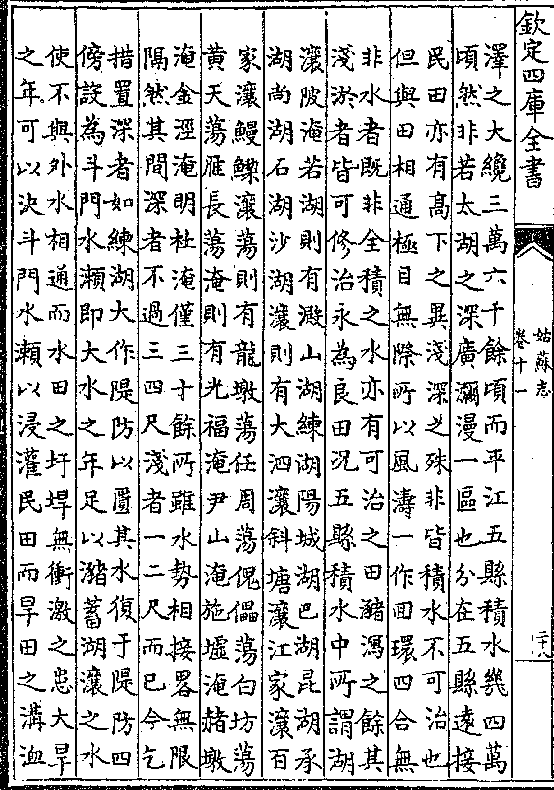 欽定四庫全書
姑蘇志
卷十一
二十八
澤之大纔三萬六千餘頃而平江五縣積水幾四萬
頃然非若太湖之深廣瀰漫一區也分在五縣遠接
民田亦有高下之異淺深之殊非皆積水不可治也
但與田相通極目無際所以風濤一作囬環四合無
非水者既非全積之水亦有可治之田豬瀉之餘其
淺淤者皆可修治永為良田況五縣積水中所謂湖
瀼陂淹若湖則有澱山湖練湖陽城湖巴湖昆湖承
湖尚湖石湖沙湖瀼則有大泗瀼斜塘瀼江家瀼百
家瀼鰻鰾瀼蕩則有龍墩蕩任周蕩傀儡蕩白坊蕩
黄天蕩雁長蕩淹則有光福淹尹山淹施墟淹赭墩
淹金涇淹明杜淹僅三十餘所雖水勢相接畧無限
隔然其間深者不過三四尺淺者一二尺而已今乞
措置深者如練湖大作隄防以匱其水復于隄防四
傍設為斗門水瀬即大水之年足以瀦蓄湖瀼之水
使不與外水相通而水田之圩垾無衝激之患大旱
之年可以決斗門水瀬以浸灌民田而旱田之溝洫